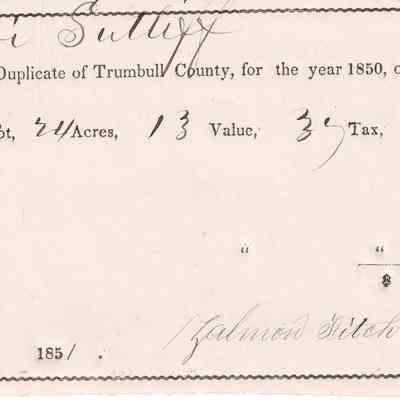 i Sutliff
Duplicate of Trumbull County, for the year 1850, o
ot, 24 Acres, 13 Value, 37 Tax,
" "
$
1851 .
Zalmon Fitch